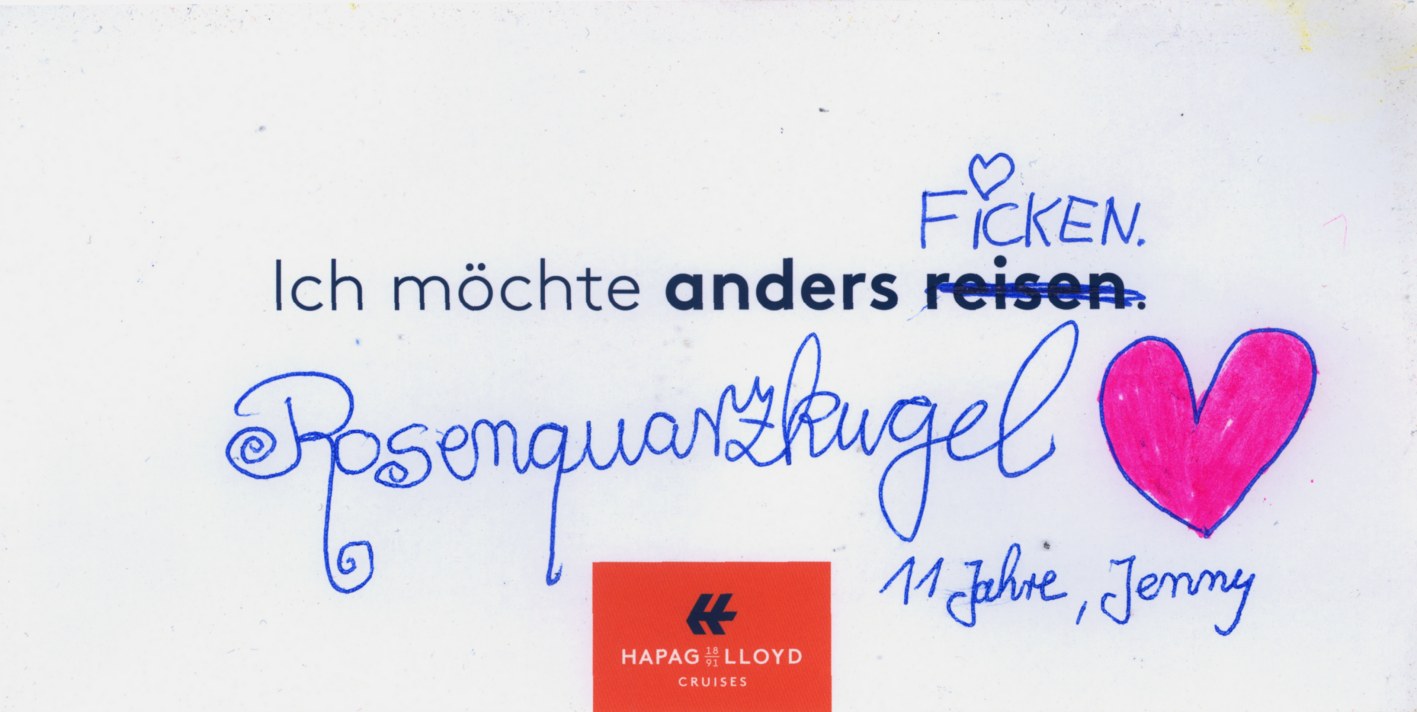 FiCKEN.
Ich möchte anders reisen.
Rosenquarzkugel
11 Jahre, Jenny
HAPAG 18 91 LLOYD
CRUISES